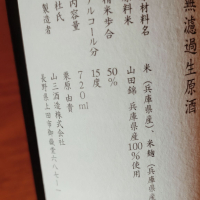 無濾過生原酒
材料名 米(兵庫県産)、米麹(兵庫県産
原料米 山田錦 兵庫県産100%使用
精米歩合 50%
アルコール分 15度
内容量 720ml
杜氏 栗原由貴
製造者 山三酒造株式会社
長野県上田市御嶽堂六八七-一